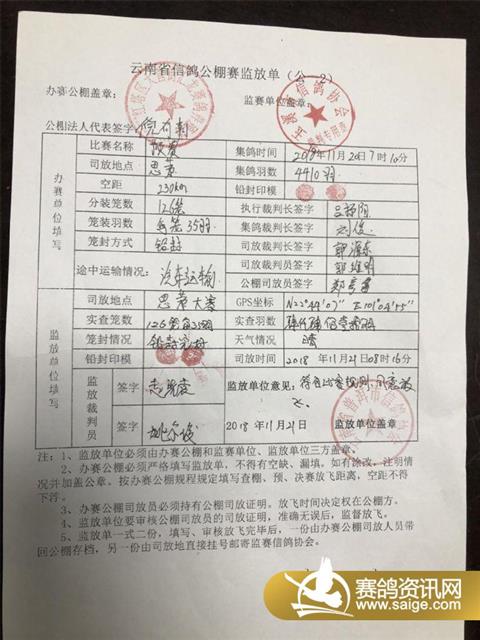 云南省信鸽公棚赛监放单（公 2）
办赛公棚盖章： 监赛单位盖章：
公棚法人代表签字
比赛名称 预赛 集鸽时间 2018年11月20日7时10分
司放地点 思茅 集鸽羽数 4410羽
空距 230km 铅封印模
分装笼数 126笼 执行裁判长签字
笼装羽数 每笼35羽 集鸽裁判长签字 刘俊
笼封方式 铅封 司放裁判长签字
途中运输情况： 汽车运输 司放裁判员签字
公棚司放员签字
办赛单位填写
司放地点 思茅大寨 GPS坐标 N22°44'07" E101°04'55"
实查笼数 126笼 实查羽数
笼封情况 铅封完好 天气情况 晴
铅封印模 司放时间 2018年11月21日08时16分
监放裁判员 签字 监放单位意见：
签字 2018年11月21日 监放单位盖章
监放单位填写
注：1、监放单位必须由办赛公棚和监赛单位、监放单位三方盖章。
2、办赛公棚必须严格填写监放单，不得有空缺、漏填。如有涂改，注明情
况并加盖公章。按办赛公棚规程规定填写查棚、预、决赛放飞距离，空距不得
下浮。
3、办赛公棚司放员必须持有公棚司放证明。放飞时间决定权在公棚方。
4、监放单位要审核公棚司放员的司放证明，准确无误后，监督放飞。
5、监放单一式二份，填写、审核放飞完毕后，一份由办赛公棚司放人员带
回公棚存档，另一份由司放地直接挂号邮寄监赛信鸽协会。
赛鸽资讯网
www.saige.com